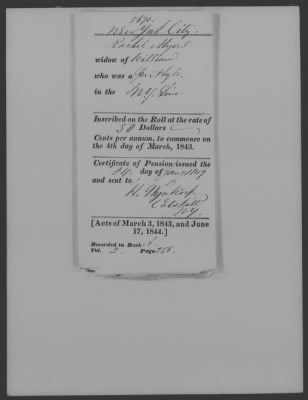 New York City.
Rachel Myers
widow of William
who was a
in the N.Y. Line
Inscribed on the Roll at the rate of
50 Dollars
Cents per annum, to commence on
the 4th day of March, 1843.
Certificate of Pension issued the
day of
and sent to
H.
N.Y.
[Acts of March 3, 1843, and June
17, 1844.]
Recorded in Book
Vol. 2. Page 258.